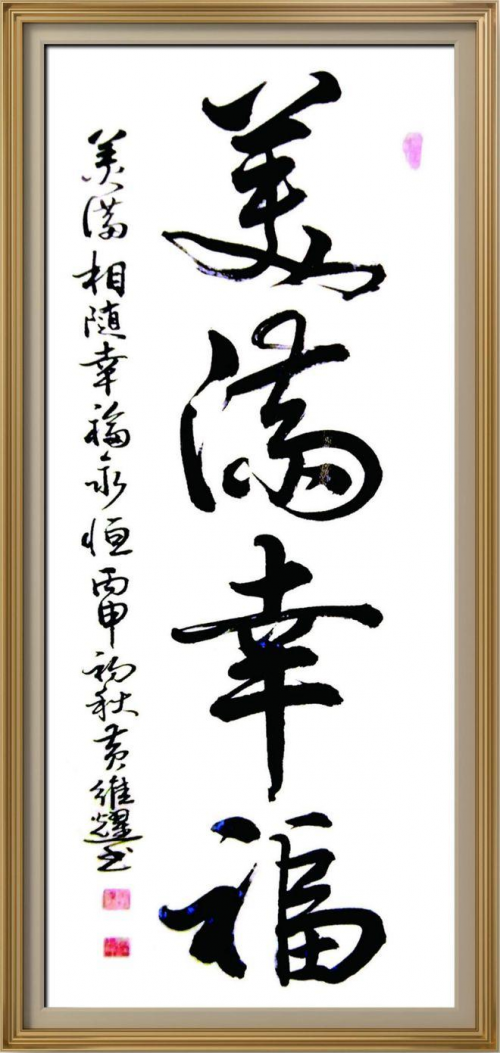 美满幸福
美满相随幸福永恒丙申初秋黄维耀书